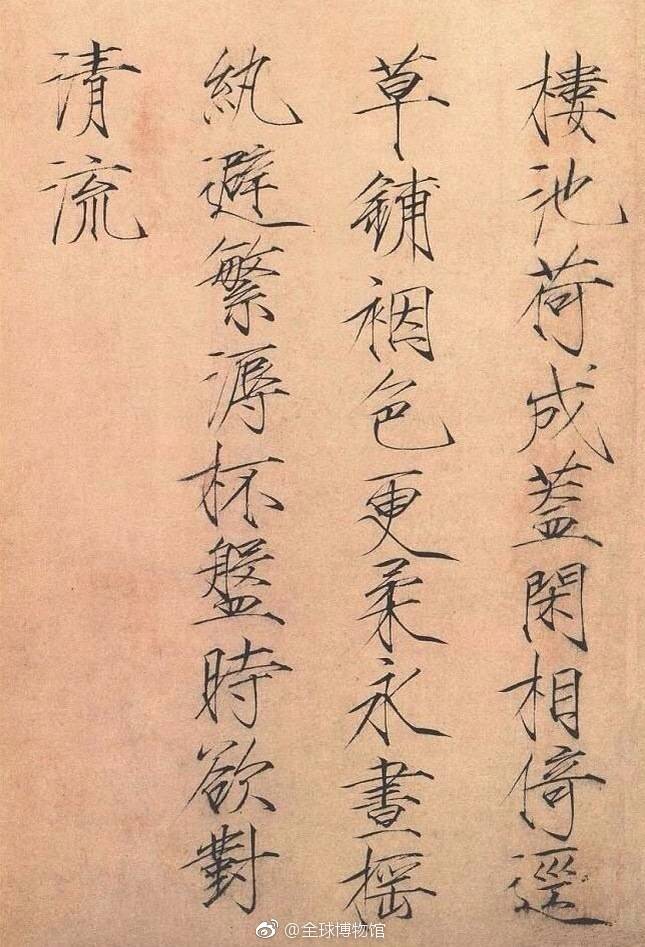 樓池荷成蓋閑相倚逕
草鋪裀色更柔永晝搖
紈避繁溽杯盤時欲對
清流
@全球博物馆